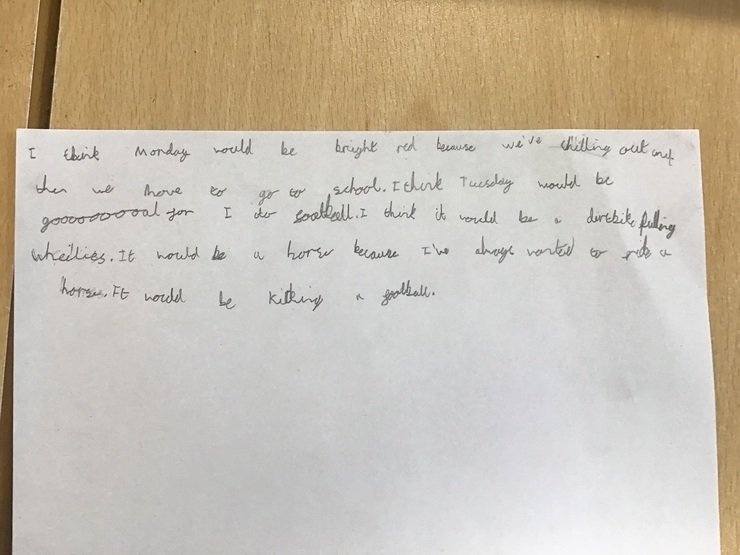 I think Monday would be bright red because we've chilling out and
then we have to go to school. I think Tuesday would be
goooooooooal for I do football. I think it would be a dirtbike pulling
wheelies. It would be a horse because I've always wanted to ride a
horse. It would be kicking a football.